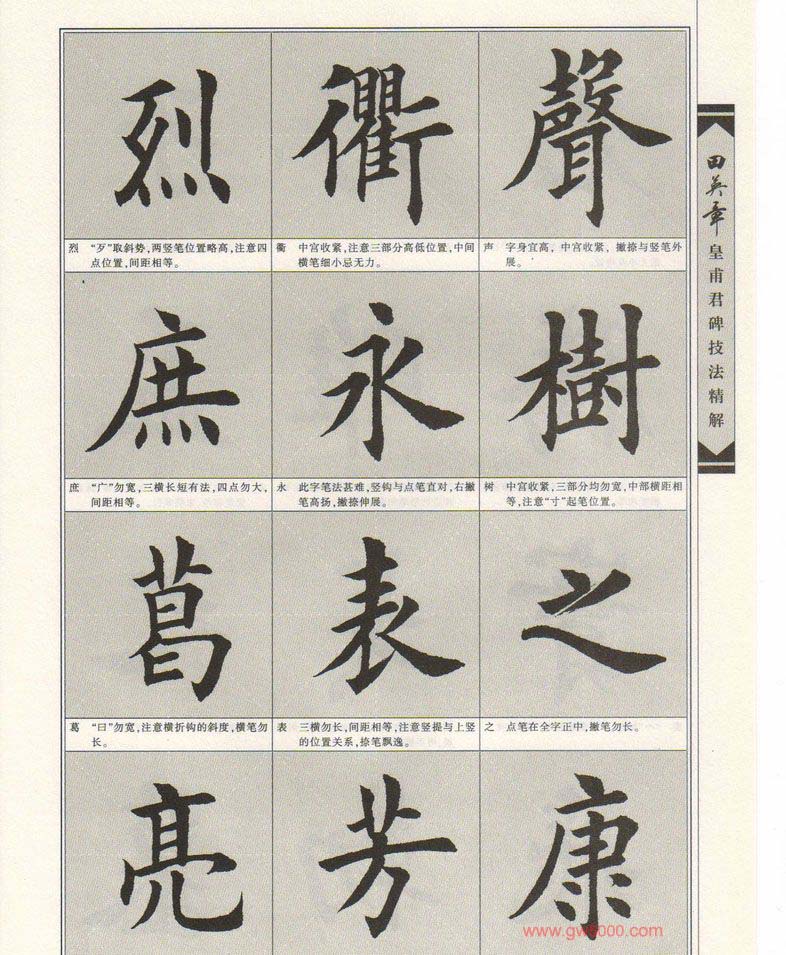 烈
衢
聲
烈 “歹”取斜势,两竖笔位置略高,注意四
点位置,间距相等。
衢 中宫收紧,注意三部分高低位置,中间
横笔细小忌无力。
声 字身宜高,中宫收紧,撇捺与竖笔外
展。
庶
永
樹
庶 “广”勿宽,三横长短有法,四点勿大,
间距相等。
永 此字笔法甚难,竖钩与点笔直对,右撇
笔高扬,撇捺伸展。
树 中宫收紧,三部分均勿宽,中部横距相
等,注意“寸”起笔位置。
葛
表
之
葛 “曰”勿宽,注意横折钩的斜度,横笔勿
长。
表 三横勿长,间距相等,注意竖提与上竖
的位置关系,捺笔飘逸。
之 点笔在全字正中,撇笔勿长。
亮
芳
康
田英章
皇甫君碑技法精解
www.gw5000.com